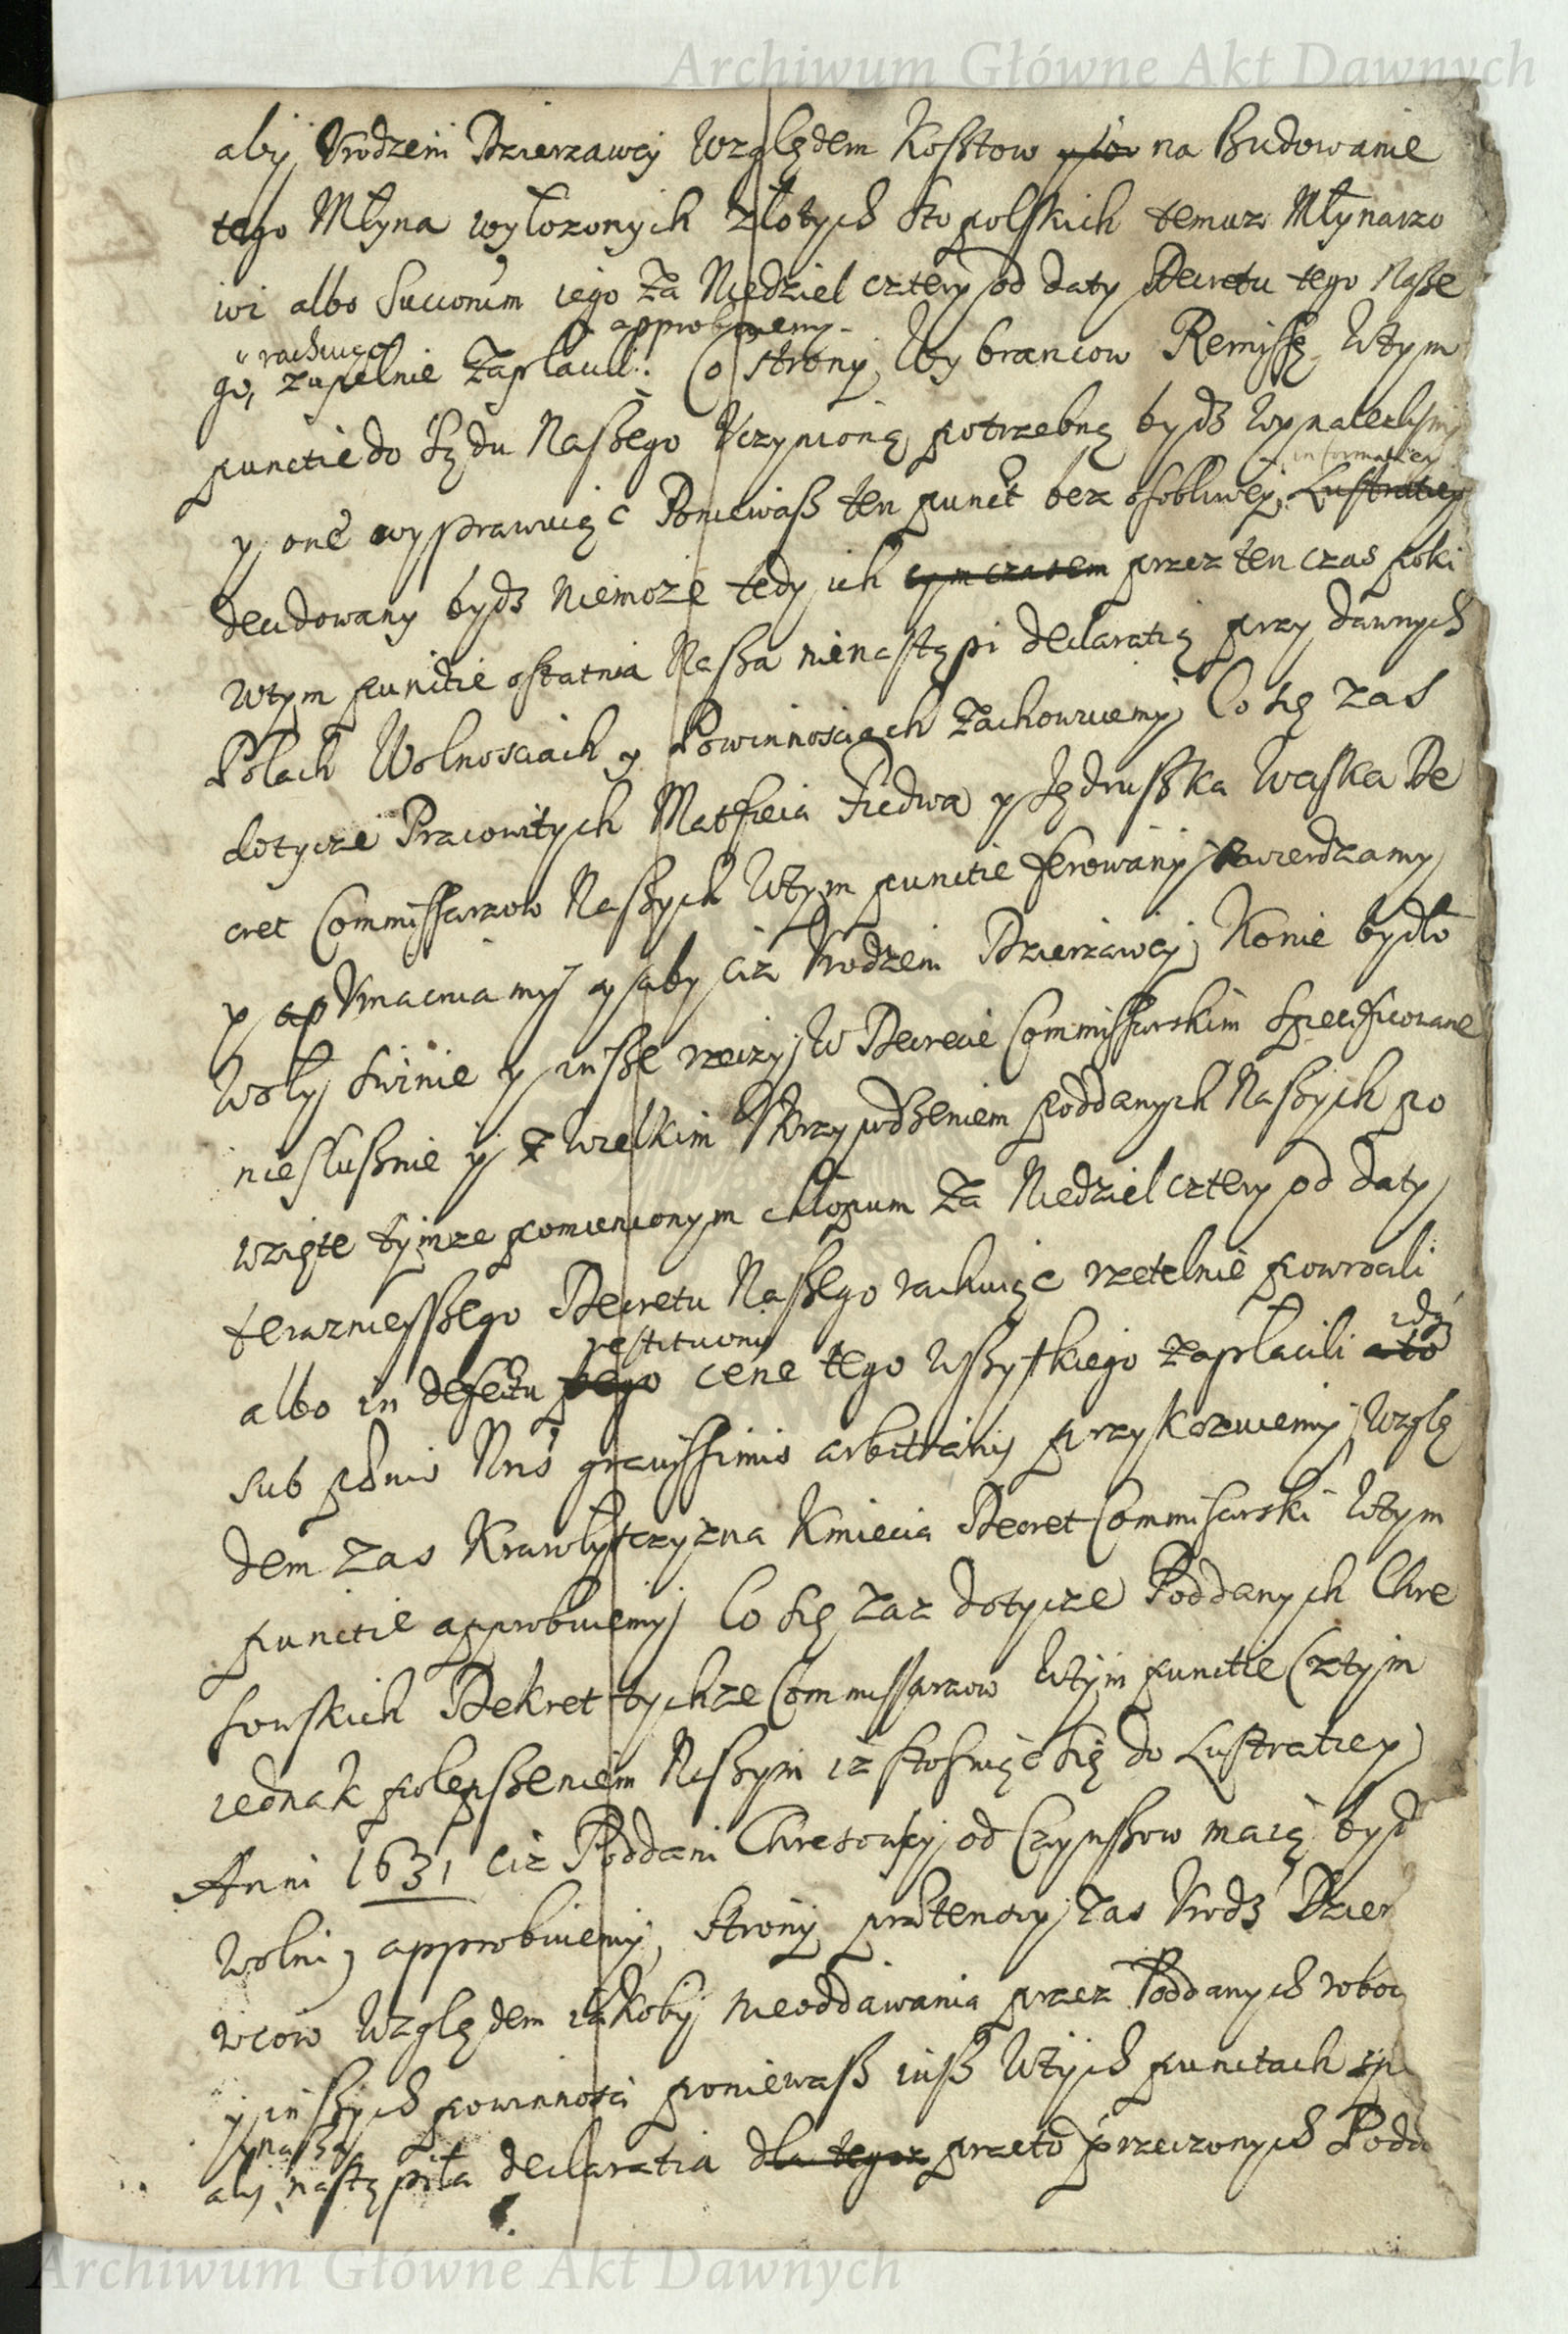 Archiwum Główne Akt Dawnych
aby Urodzeni Dzierzawcy Względem Kosztow na Budowanie
tego Młyna wyłozonych złotych sto polskich temuz Młynarzo
wi albo Succorum iego za Niedziel cztery od daty Decretu tego Nasze
approbuiemy
rachuiąc
go, zupełnie zapłacili. Co strony Wybrancow Remissę Wtym
punctie do Sądu Naszego Uczynioną potrzebną bydz wynalezlismy
informatiey
y onę wyprawuiąc Poniewasz ten punct bez osobliwey Lustratiey
decidowany bydz niemoze tedy ich tym czasem przez ten czas poki
Wtym punctie ostatnia Nasza nienastąpi declaratią przy dawnych
Polach Wolnosciach y Powinnosciach zachowuiemy, Co się zas
dotycze Pracowitych Matheia Fiedwa y Jędruszka Waska De
cret Commissarzow Naszych Wtym punctie ferowany stwierdzamy
y ap Umacniamy y aby ciz Urodzeni Dzierzawcy, Konie bydło
Woły swinie y insze rzeczy W Decrecie Commissarskim specificowane
niesłusznie y z wielkim Ukrzywdzeniem poddanych Naszych po
wzięte tymze pomienionym chłopum za Niedziel cztery od daty
teraznieyszego Decretu Naszego rachuiąc rzetelnie powrocili
restitucony
idą
albo in defectu cene tego wszytkiego zapłacili a to
sub pœnis Nris gravissimis arbitrarijs przykazuiemy, Wzglę
dem zas Krawlytczyzna Kmiecia Decret Commisarski Wtym
punctie approbuiemy, Co się zaz dotycze Poddanych Chre
sowskich Dekret tychze Commissarzow Wtym punctie (z tym
iednak polepszeniem Naszym iz stosuiąc się do Lustratiey
Anni 1631 ciz Poddani Chresowscy od Czynszow maią bydz
Wolni) approbuiemy, strony prætensiy zas Urodz Dzier
wcow Względem iakoby nieoddawania przez Poddanych roboc
y inszych powinnosci poniewasz iusz Wtych punctach sp
nasza
aly nastąpiła declaratia dla tegoz przeto przerzonych Podd
Archiwum Główne Akt Dawnych